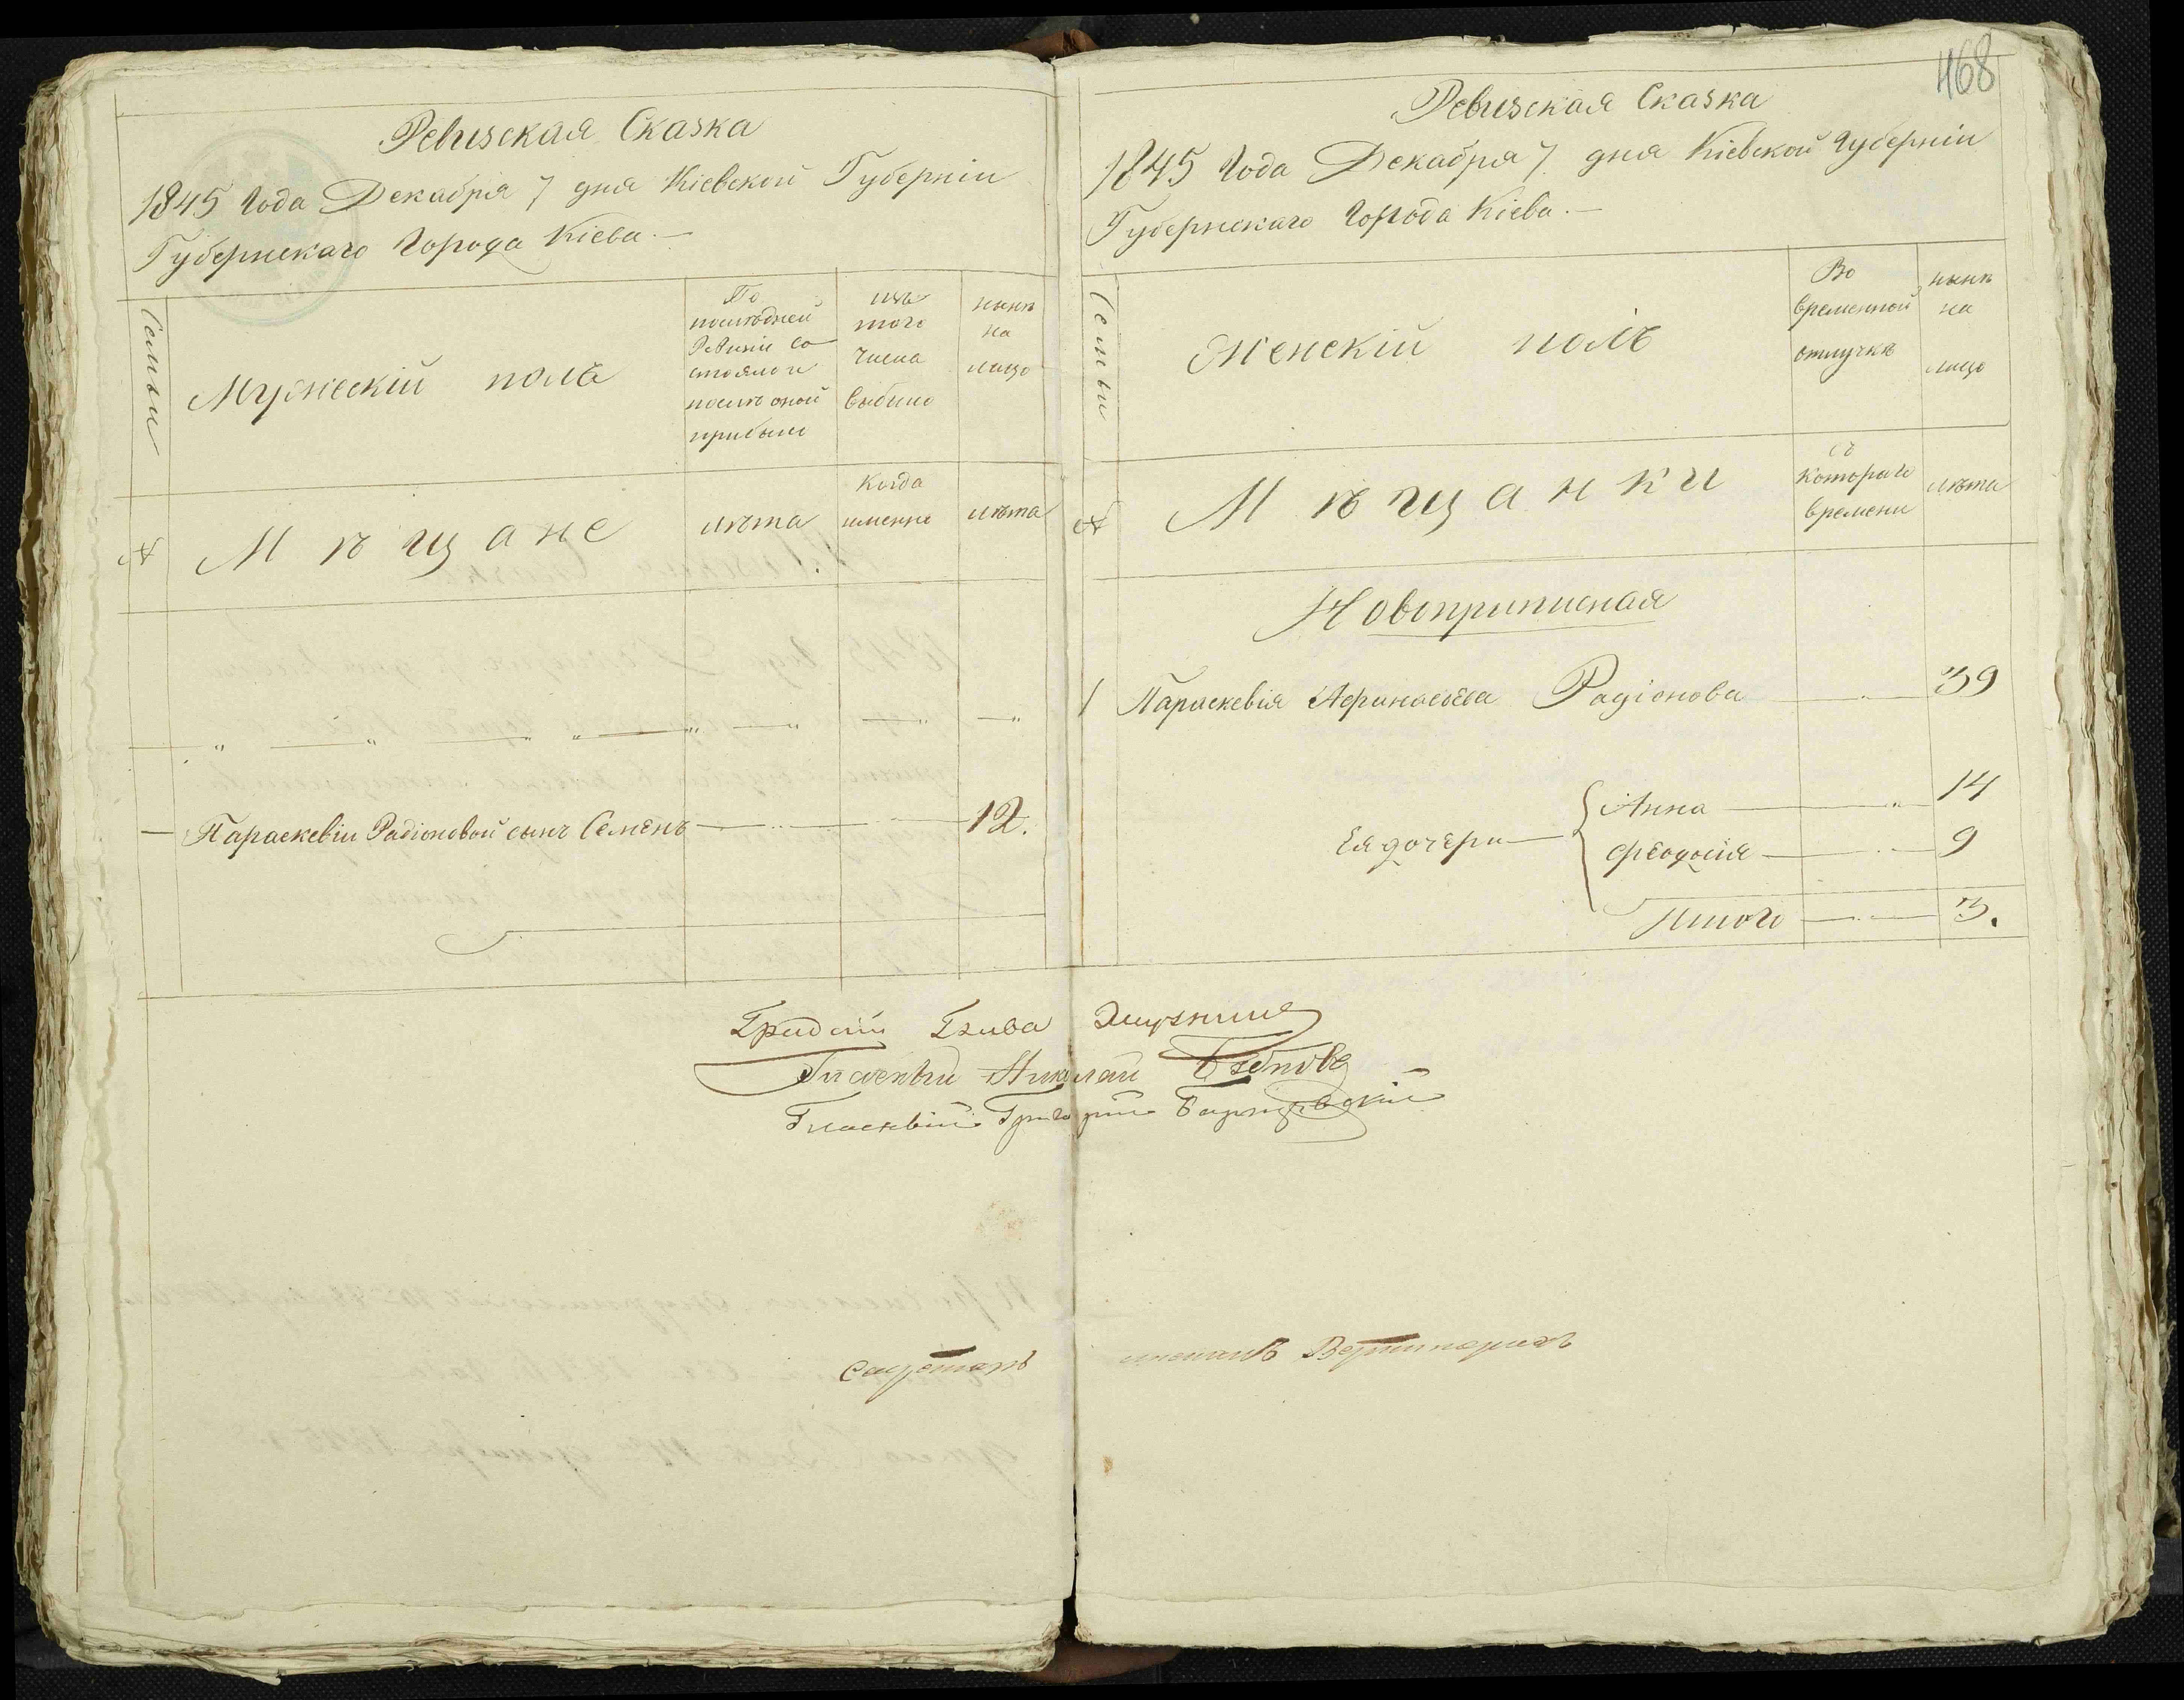 468
Ревизская Сказка
1845 Года Декабря 7 дня Кіевской Губерніи
Губернскаго Города Кіева.—
Семьи
Мужескій полъ
По
послѣдней
Ревизіи со
стояло и
послѣ оной
прибыло
изъ
того
числа
выбыло
нынѣ
на
лицо
№
Мѣщане
лѣта
Когда
именно
лѣта
— Параскевіи Радіоновой сынъ Семенъ — 12.
Ревизская Сказка
1845 Года Декабря 7 дня Кіевской Губерніи
Губернскаго Города Кіева.—
Семьи
Женскій полъ
Во
временной
отлучкѣ
нынѣ
на
лицо
№
Мѣщанки
съ
котораго
времени
лѣта
Новоприписная
1 Параскевія Афанасьева Радіонова — 39
Ея дочери — Анна — 14
Феодосія — 9
Итого — 3.
Градскій Глава
Гласный Николай
Гласный Григорій
Секретарь